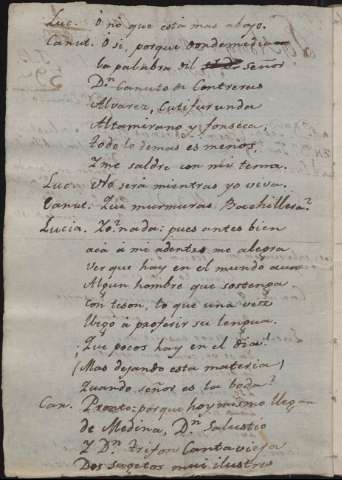 Luc. O no que está mas abajo.
Canut. O si, porque donde media
la palabra del señor
Dn. Canuto de Contreras
Alvarez, Cutifurunda
Altamirano y fonseca,
todo lo demas es menos.
Y me saldre con mi tema.
Luc. No será mientras yo viva.
Canut. Que murmuras Bachillera?
Lucia. Yo? nada: pues antes bien
acá á mi adentro me alegra
ver que hay en el mundo aun
Algun hombre que sostenga
Con teson, lo que una vez
llegó á proferir su lengua.
Que pocos hay en el dia!
(Mas dejando esta materia)
Quando señor es la boda?
Can. Pronto: porque hoy mismo llegan
de Medina, Dn. Salustio
Y Dn. Trifon Cantavieja
Dos sugetos mui ilustres